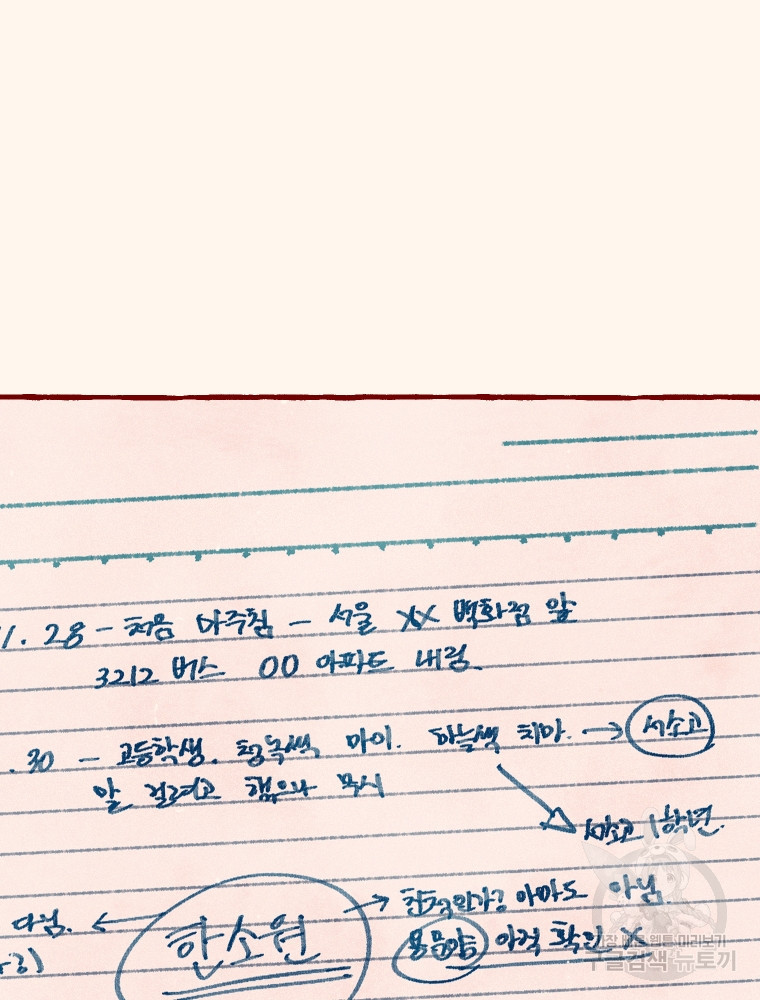 1.28 - 처음 마주침 - 서울 XX 백화점 앞
3212 버스 OO 아파트 내림.
.30 - 고등학생. 청록색 마이. 하늘색 치마. → 서소고
말 걸려고 했으나 무시
서소고 1학년.
다님. ← 한소원 → 아마도 아님.
아직 확인 X
가장 빠른 웹툰 미리보기
구글검색 뉴토끼